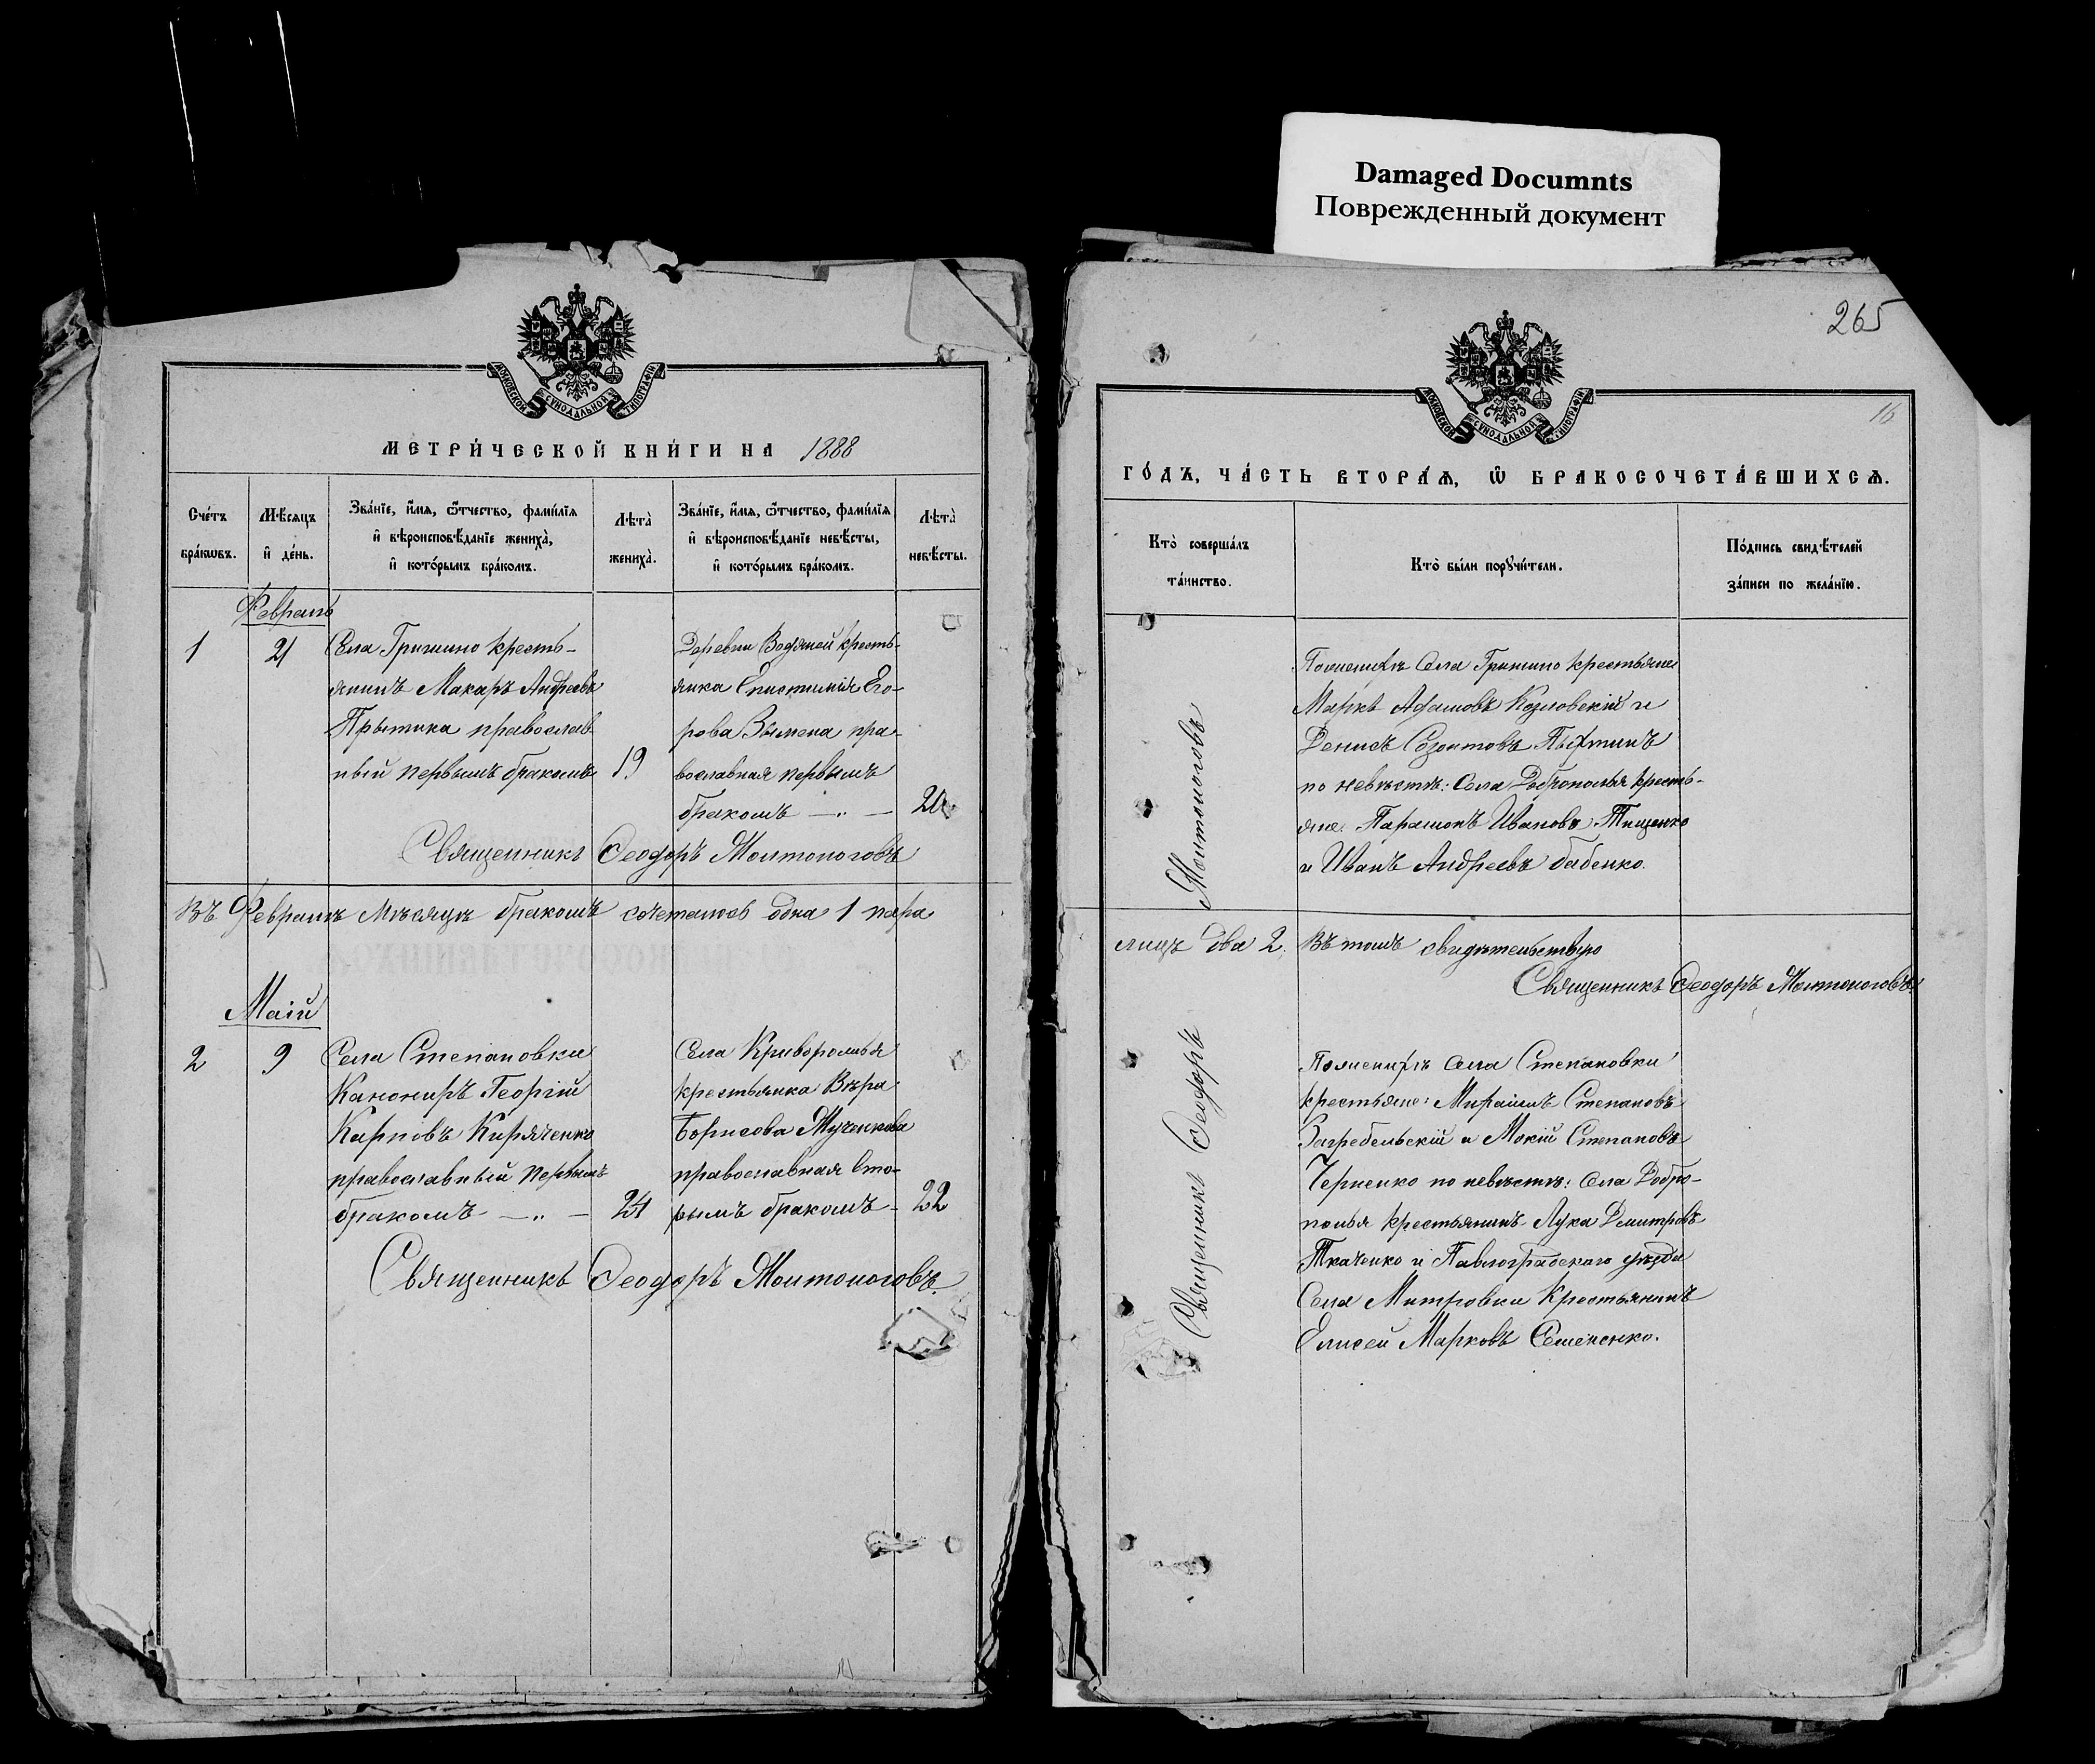 Damaged Documnts
Поврежденный документ
МОСКОВСКОЙ СѴНОДАЛЬНОЙ ТИПОГРАФІИ
МЕТРИ́ЧЕСКОЙ КНИ́ГИ НА 1888
Сче́тъ бра́кѡвъ.
Мѣ́сяцъ и҆ де́нь.
Зва́нїе, и҆́мѧ, ѻ҆́тчество, фами́лїѧ и҆ вѣроисповѣ́данїе жениха̀, и҆ кото́рымъ бра́комъ.
Лѣта̀ жениха̀.
Зва́нїе, и҆́мѧ, ѻ҆́тчество, фами́лїѧ и҆ вѣроисповѣ́данїе невѣ́сты, и҆ кото́рымъ бра́комъ.
Лѣта̀ невѣ́сты.
Февраль
1
21
Села Гришино кресть-
янинъ Макаръ Андреевъ
Прытика православ
ный первымъ бракомъ
19
Деревни Водяной кресть-
янка Епистимія Его-
рова пра-
вославная первымъ
бракомъ — „ —
20
Священникъ Ѳеодоръ Молтоноговъ
Въ Февралѣ Мѣсяцѣ бракомъ сочеталось одна 1 пара
Маій
2
9
Села Степановки
Канониръ Георгій
Карповъ Киряченко
православный первымъ
бракомъ — „ —
24
Села Криворожья
крестьянка Вѣра
Борисова Мученкова
православная вто-
рымъ бракомъ -
22
Священникъ Ѳеодоръ Молтоноговъ.
265
МОСКОВСКОЙ СѴНОДАЛЬНОЙ ТИПОГРАФІИ
16
ГО́ДЪ, ЧА́СТЬ ВТОРА́Ѧ, Ѡ҆ БРАКОСОЧЕТА́ВШИХСѦ.
Кто̀ соверша́лъ та́инство.
Кто̀ бы́ли порꙋчи́тели.
По́дпись свидѣ́телей за́писи по жела́нїю.
По женихѣ Села Гришино крестьяне
Маркъ Адамовъ Козловскій и
Денисъ Созонтовъ
по невѣстѣ: Села Доброполья кресть-
яне: Парамонъ Ивановъ Тищенко
и Иванъ Андреевъ Бабенко.
лицъ два 2. Въ томъ свидѣтельствую
Священникъ Ѳеодоръ Молтоноговъ.
Священникъ Ѳеодоръ Молтоноговъ
По женихѣ Села Степановки
крестьяне: Степановъ
Загребельскій и Мокій Степановъ
Черненко по невѣстѣ: Села Добро-
полья крестьянинъ Лука Дмитровъ
Ткаченко и Павлоградскаго уѣзда
Села Митровки Крестьянинъ
Елисей Марковъ Семененко.